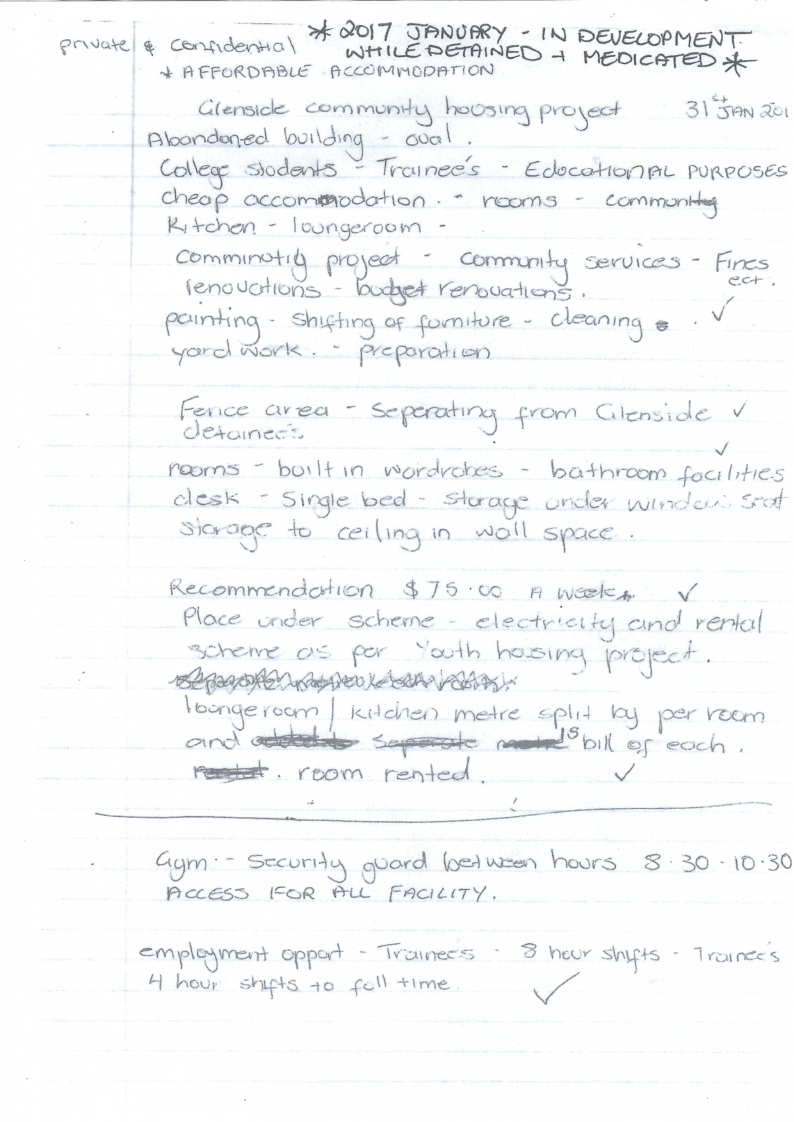 private & confidential * 2017 JANUARY - IN DEVELOPMENT
WHILE DETAINED + MEDICATED *
+ AFFORDABLE ACCOMMODATION
Glenside community housing project 31st JAN 201
Abandoned building - oval.
College students - Trainee's - EDUCATIONAL PURPOSES
cheap accommodation. - rooms - community
kitchen - loungeroom -
Comminutiy project - community services - Fines
ect.
renovations - budget renovations.
painting - shifting of furniture - cleaning . ✓
yard work. - preparation
Fence area - Seperating from Glenside ✓
detainee's
✓
rooms - built in wardrobes - bathroom facilities
desk - Single bed - storage under window seat
storage to ceiling in wall space.
Recommendation $75.00 A week ✓
Place under scheme - electricity and rental
scheme as per Youth housing project.
loungeroom / kitchen metre split by per room
and is bill of each.
room rented. ✓
Gym - Security guard between hours 8.30 - 10.30
ACCESS FOR ALL FACILITY.
employment opport - Trainee's - 8 hour shifts - Trainee's
4 hour shifts to full time ✓